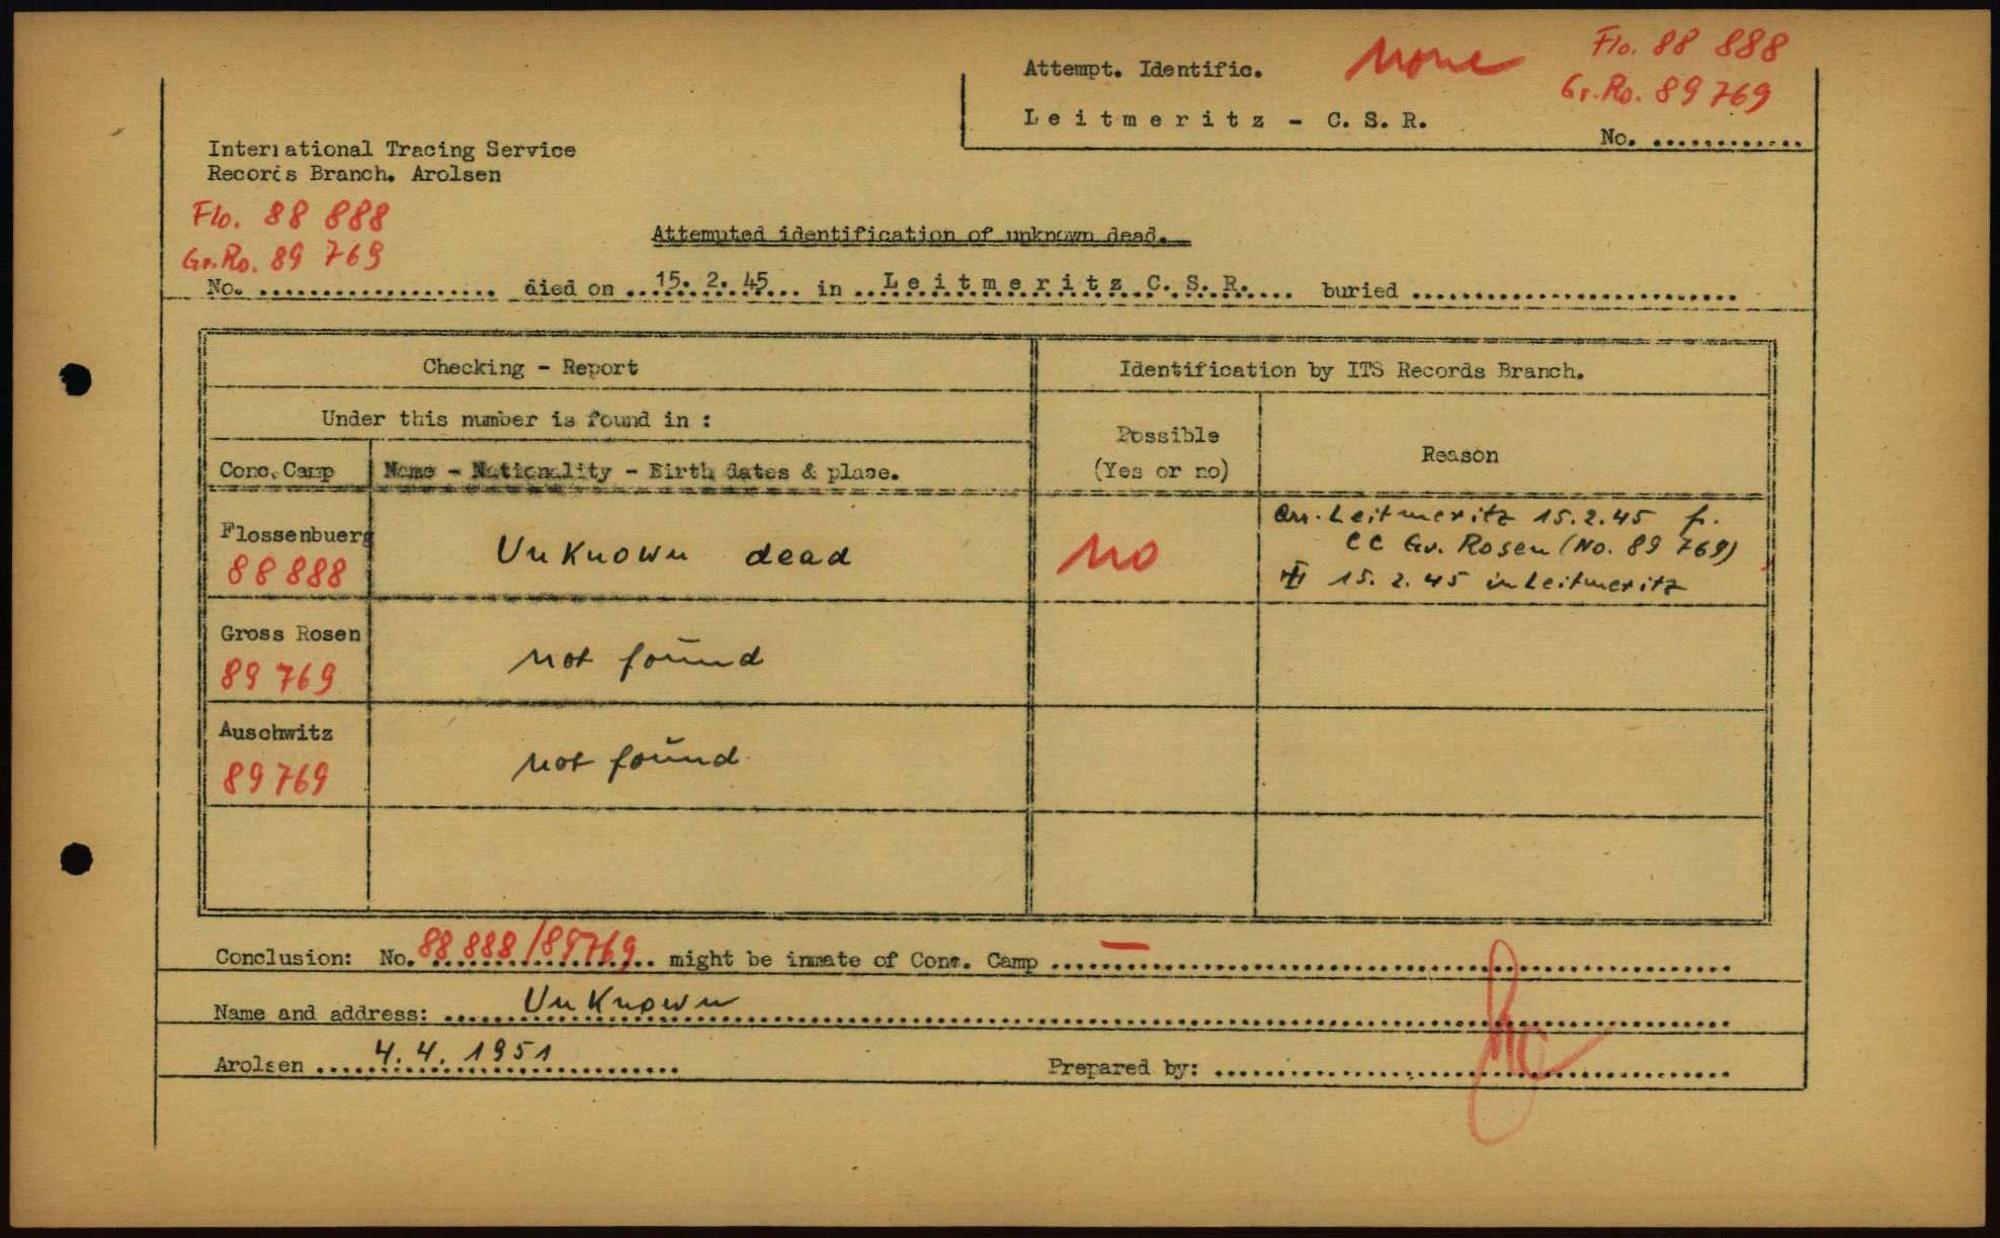 Attempt. Identific. none Flo. 88 888
Gr.Ro. 89 769
Leitmeritz - C. S. R.
No. ............
International Tracing Service
Records Branch. Arolsen
Flo. 88 888
Gr.Ro. 89 769
Attempted identification of unknown dead.
No. .................... died on ...15. 2. 45... in ..Leitmeritz C. S. R..... buried ..........................
Checking - Report
Identification by ITS Records Branch.
Under this number is found in :
Conc. Camp
Name - Nationality - Birth dates & place.
Possible
(Yes or no)
Reason
Flossenbuerg
88 888
Unknown dead
no
arr. Leitmeritz 15.2.45 f.
CC Gr. Rosen (No. 89 769)
15. 2. 45 in Leitmeritz
Gross Rosen
89 769
not found
Auschwitz
89 769
not found
Conclusion: No. 88 888/89769 might be inmate of Conc. Camp —
Name and address: Unknown
Arolsen 4. 4. 1951
Prepared by: